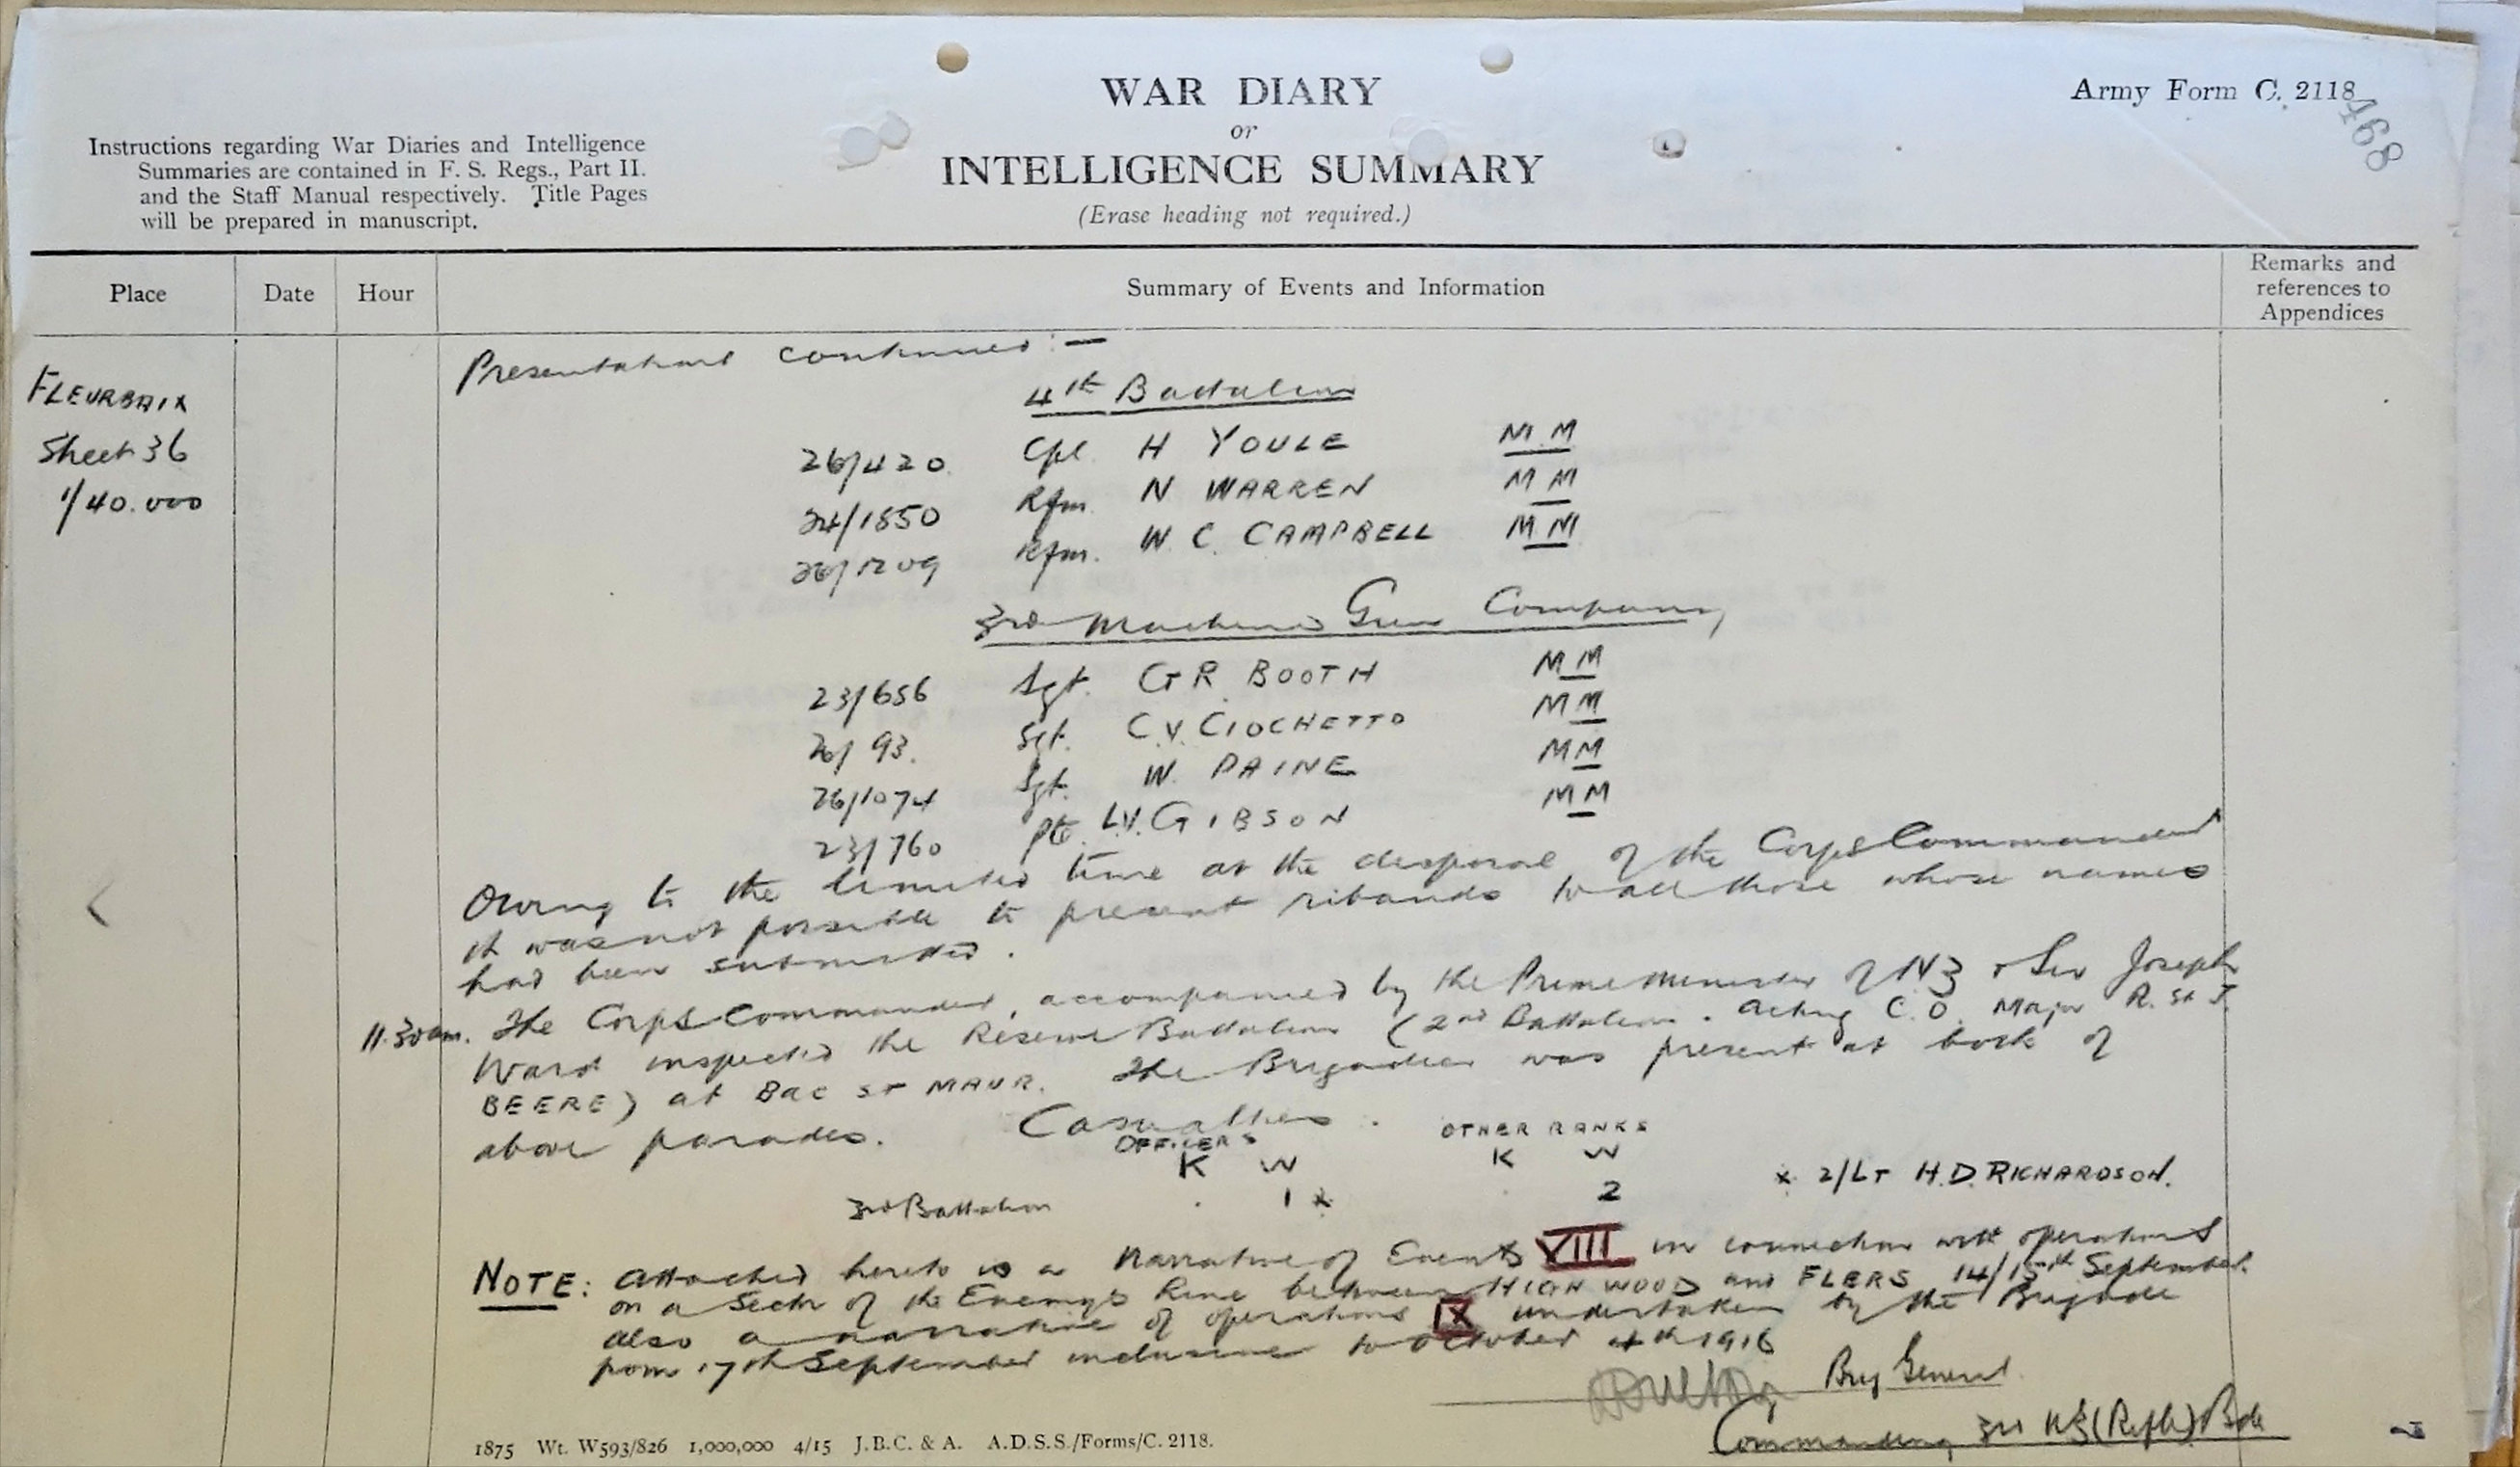 WAR DIARY
or
INTELLIGENCE SUMMARY
(Erase heading not required.)
Army Form C. 2118
468
Instructions regarding War Diaries and Intelligence
Summaries are contained in F. S. Regs., Part II.
and the Staff Manual respectively. Title Pages
will be prepared in manuscript.
Place Date Hour Summary of Events and Information Remarks and references to Appendices
FLEURBAIX
Sheet 36
1/40.000
Presentations continued :—
4th Battalion
26/420. Cpl. H YOULE M.M
24/1850 Rfm. N WARREN M M
26/1209 Rfm. W. C. CAMPBELL M.M
3rd Machine Gun Company
23/656 Sgt. G R BOOTH M M
26/93. Sgt. C.V. CIOCHETTO M M
26/1074 Sgt. W. PAINE M M
23/760 Pte L.V. GIBSON M M
Owing to the limited time at the disposal of the Corps Commander
it was not possible to present ribands to all those whose names
had been submitted.
11.30am. The Corps Commander, accompanied by the Prime Minister of NZ & Sir Joseph
Ward inspected the Reserve Battalion (2nd Battalion. Acting C.O. Major R. St J.
BEERE) at Bac St MAUR. The Brigadier was present at both of
above parades.
Casualties.
OFFICERS OTHER RANKS
K W K W
3rd Battalion . 1 x 2 x 2/LT H.D. RICHARDSON.
NOTE: Attached hereto is a Narrative of Events VIII in connection with operations
on a Sector of the Enemy's Line between HIGH WOOD and FLERS 14/15th September.
also a narrative of operations IX undertaken by the Brigade
from 17th September inclusive to October 4th 1916
Brig General
Commanding 3rd NZ (Rifle) Bde
1875 Wt. W593/826 1,000,000 4/15 J.B.C. & A. A.D.S.S./Forms/C. 2118.